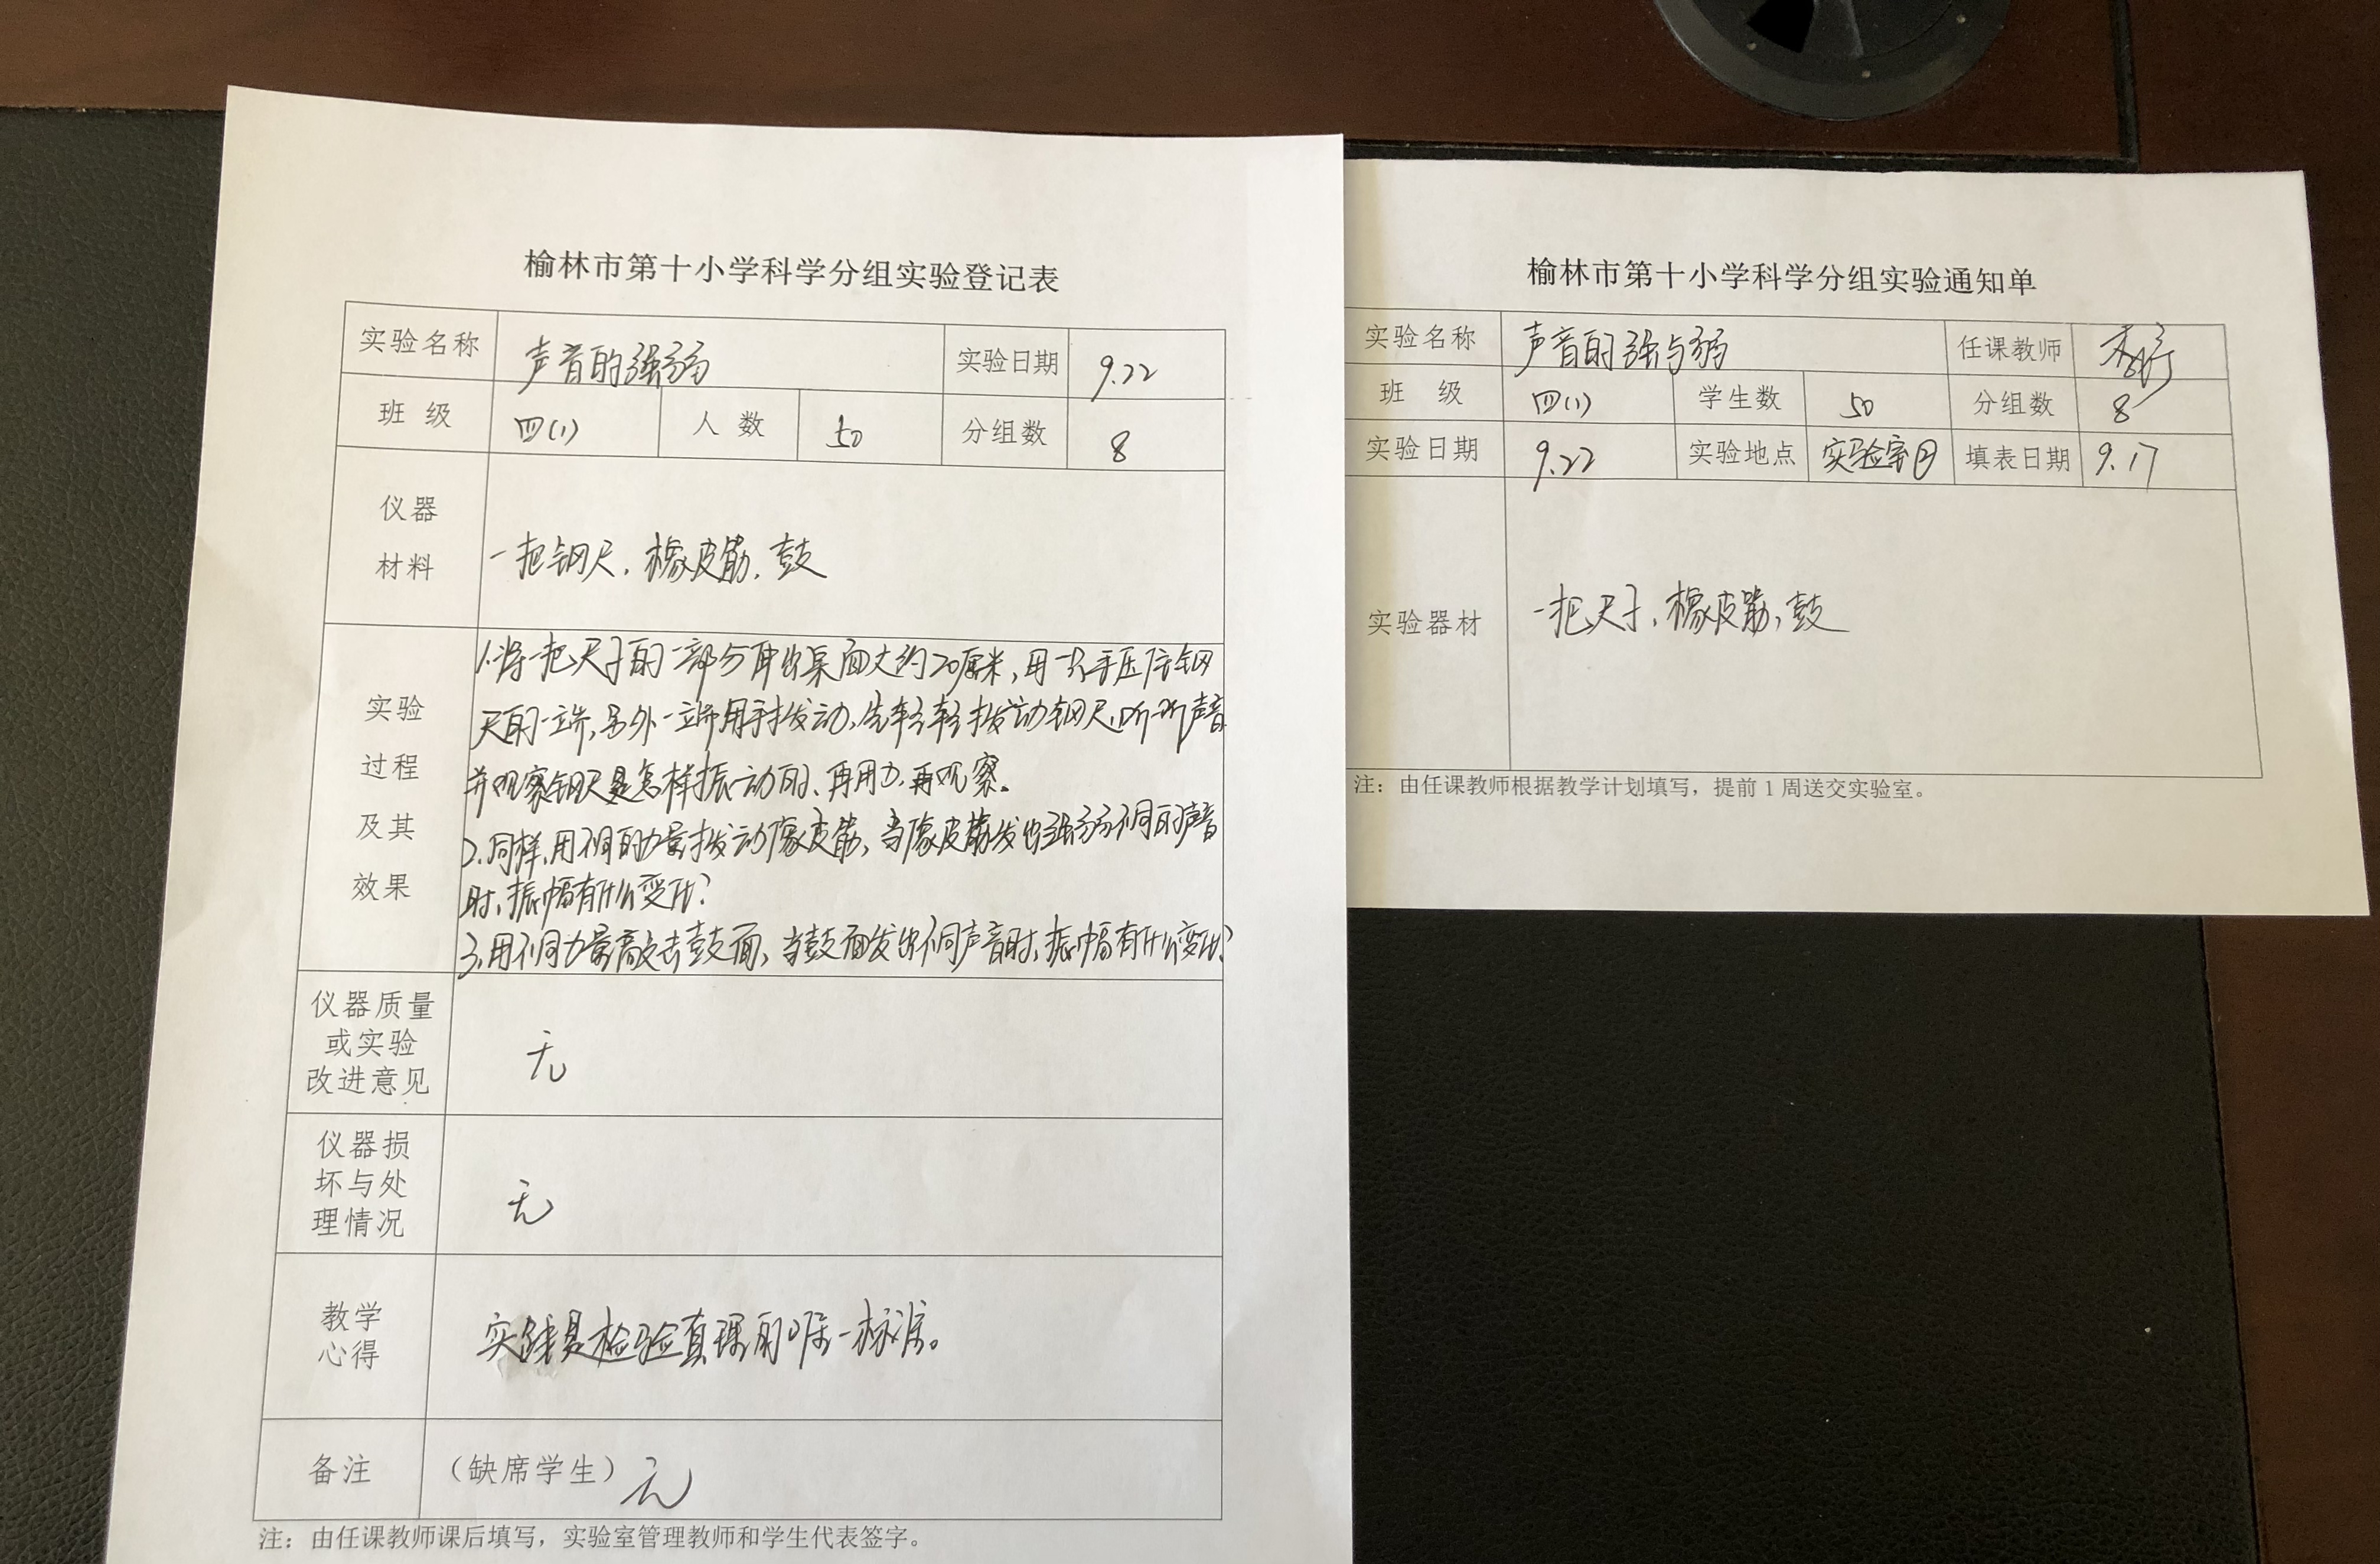 榆林市第十小学科学分组实验登记表
实验名称 声音的强弱 实验日期 9.22
班 级 四(1) 人 数 50 分组数 8
仪器
材料
一把钢尺、橡皮筋、鼓
实验
过程
及其
效果
1.将一把尺子的一部分伸出桌面大约20厘米,用一只手压住钢
尺的一端,另外一端用手拨动,先轻轻拨动钢尺,听听声音
并观察钢尺是怎样振动的、再用力,再观察。
2.同样,用不同的力量拨动橡皮筋,当橡皮筋发出强弱不同的声音
时,振幅有什么变化?
3.用不同力量敲击鼓面,当鼓面发出不同声音时,振幅有什么变化?
仪器质量
或实验
改进意见
无
仪器损
坏与处
理情况
无
教学
心得
实践是检验真理的唯一标准。
备注 (缺席学生) 无
注:由任课教师课后填写,实验室管理教师和学生代表签字。
榆林市第十小学科学分组实验通知单
实验名称 声音的强与弱 任课教师
班 级 四(1) 学生数 50 分组数 8
实验日期 9.22 实验地点 实验室 填表日期 9.17
实验器材 一把尺子、橡皮筋,鼓
注:由任课教师根据教学计划填写,提前1周送交实验室。